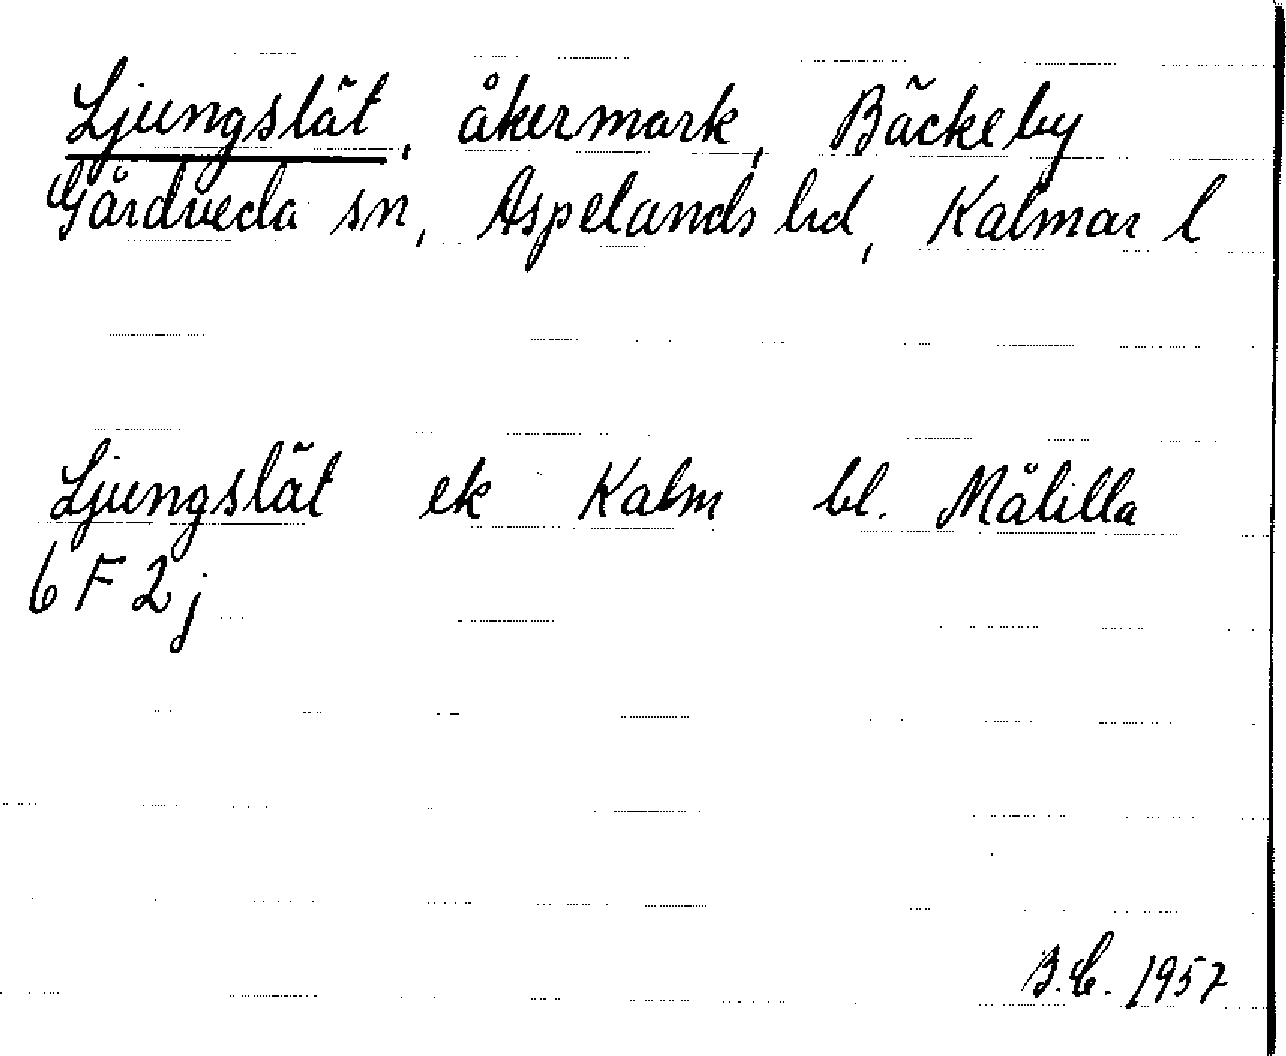 Ljungslät, åkermark, Bäckeby
Gårdveda sn, Aspelands hd, Kalmar l
Ljungslät ek Kalm bl. Målilla
6 F 2 j
B.E. 1957